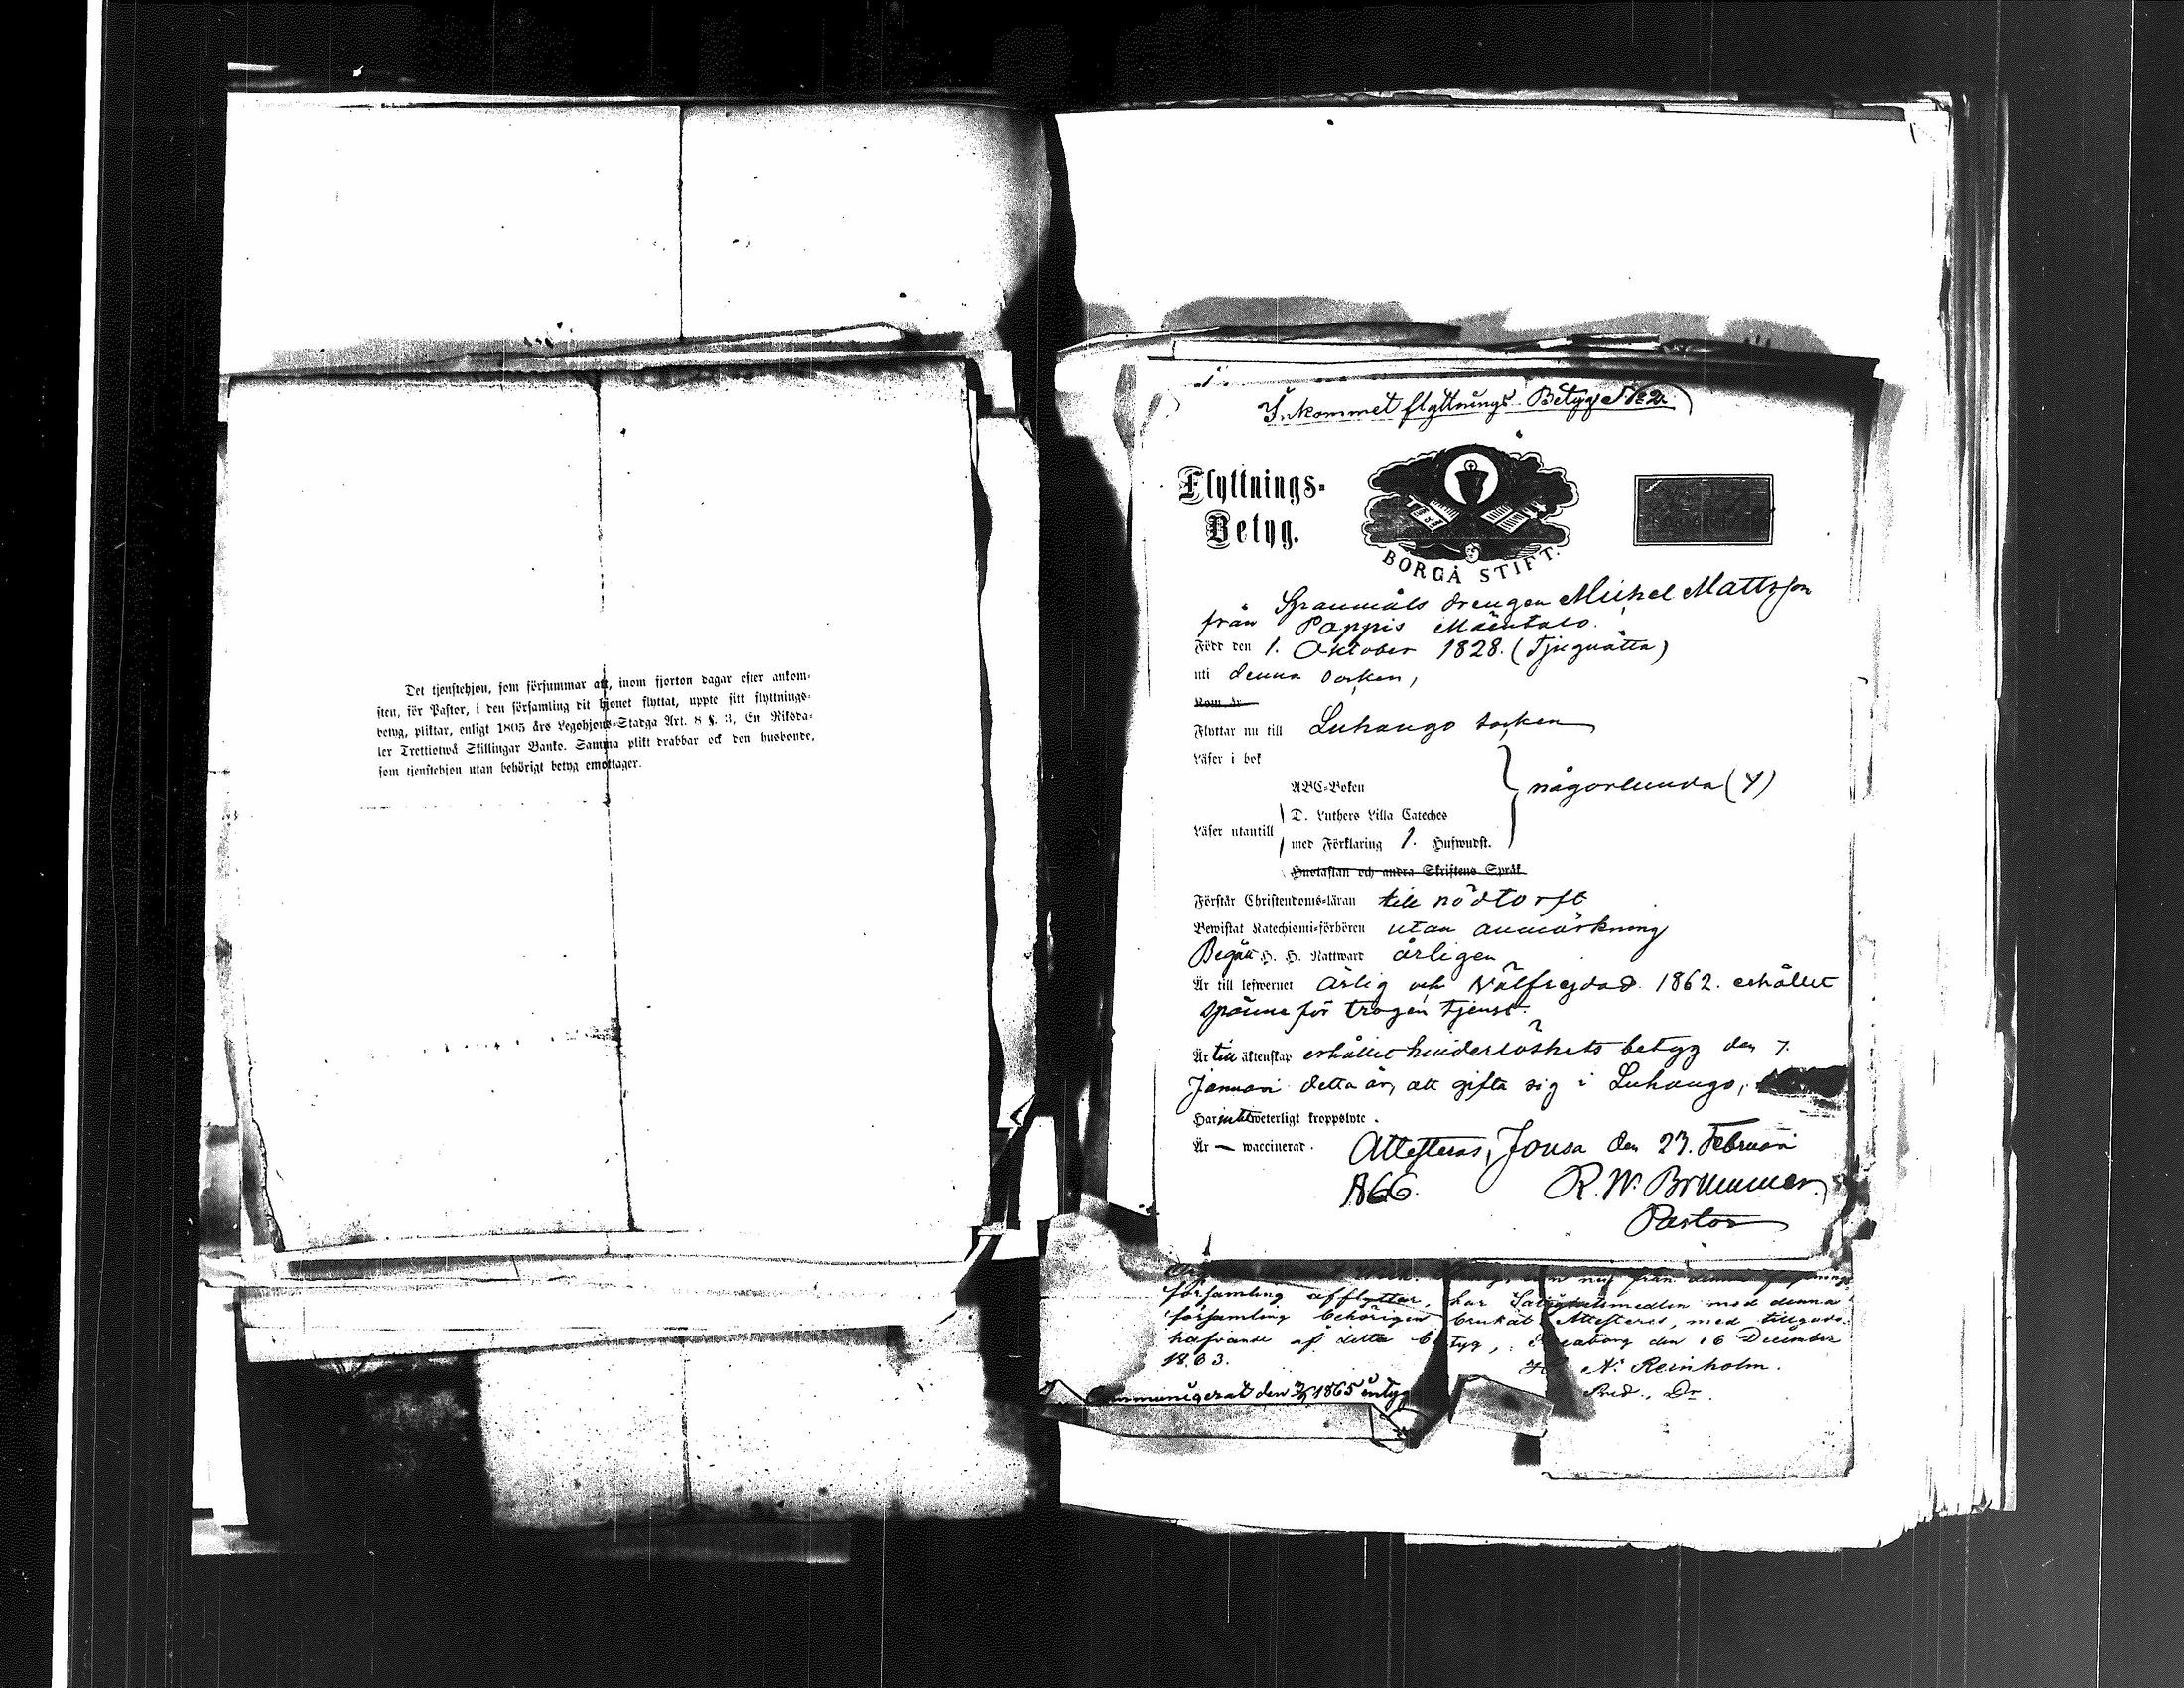 Det tjenstehjon, som försummar att, inom fjorton dagar efter ankom-
sten, för Pastor, i den församling dit hjonet flyttat, uppte sitt flyttnings-
betyg, pliktar, enligt 1805 års Legohjons-Stadga Art. 8 §. 3, En Riksda-
ler Trettiotwå Skillingar Banko. Samma plikt drabbar ock den husbonde,
som tjenstehjon utan behörigt betyg emottager.
Inkommet flyttnings Betyg N:o 2.
Flyttnings-
Betyg.
BORGÅ STIFT.
drengen Michel Mattsson
från Pappis Mäentalo.
Född den 1. Oktober 1828. (Tjuguåtta)
uti denna socken,
Flyttar nu till Luhango socken
Läser i bok
ABC-Boken
någorlunda (4)
D. Luthers Lilla Cateches
Läser utantill
med Förklaring 1. Hufwudst.
Hustaflan och andra Skriftens Språk
Förstår Christendoms-läran till nödtorft
Bewistat Katechismi-förhören utan anmärkning
Begått H. H. Nattward årligen
Är till lefwernet ärlig och välfrejdad. 1862. erhållit
för trogen tjenst.
Är till äktenskap erhållit hinderlöshets betyg den 7.
Januari detta år, att gifta sig i Luhango,
Har intet weterligt kroppslyte.
Är — waccinerat.
Attesteras, Jousa den 27. Februari
1866.
R. W. Brummer.
Pastor
församling afflyttar, har Salighetsmedlen med denna
församling behörigen brukat Attesteras, med tillgodo-
hafvande af detta betyg, Sveaborg den 16 December
1863.
A. Reinholm.
Pred., Dr.
Communicerat den 1865 intyg